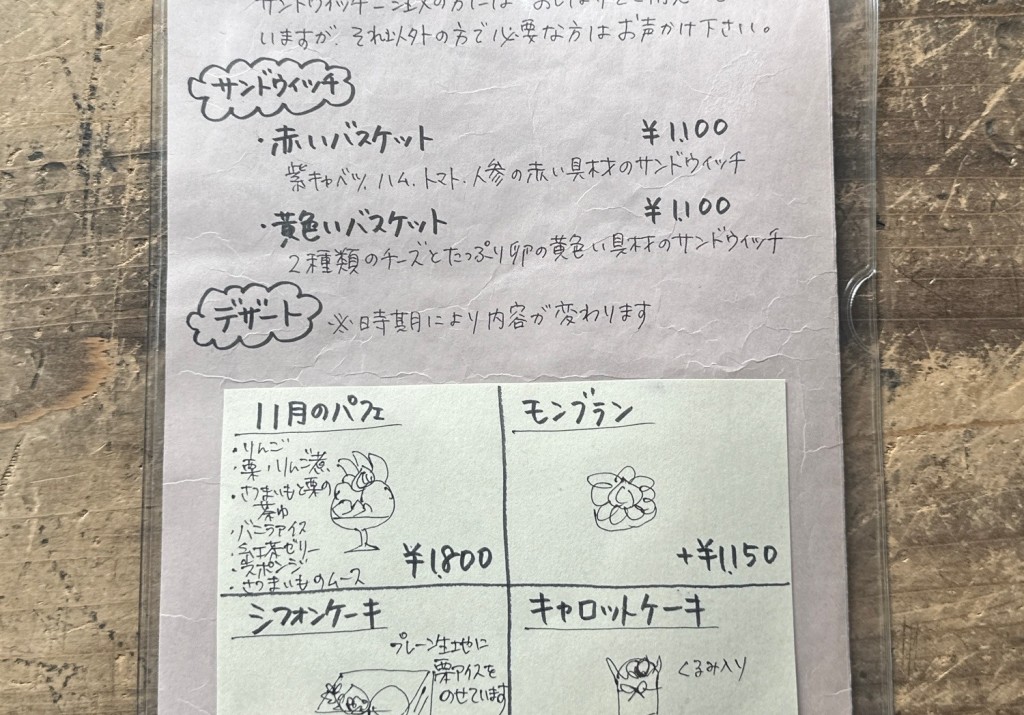 いますが、それ以外の方で必要な方はお声かけ下さい。
サンドウィッチ
・赤いバスケット ¥1,100
紫キャベツ、ハム、トマト、人参の赤い具材のサンドウィッチ
・黄色いバスケット ¥1,100
2種類のチーズとたっぷり卵の黄色い具材のサンドウィッチ
デザート ※時期により内容が変わります
11月のパフェ
・りんご
・栗、りんご煮
・さつまいもと栗の
・バニラアイス
・紅茶ゼリー
・スポンジ
・さつまいものムース
¥1,800
モンブラン
+¥1,150
シフォンケーキ
プレーン生地に
栗アイスを
のせています
キャロットケーキ
くるみ入り